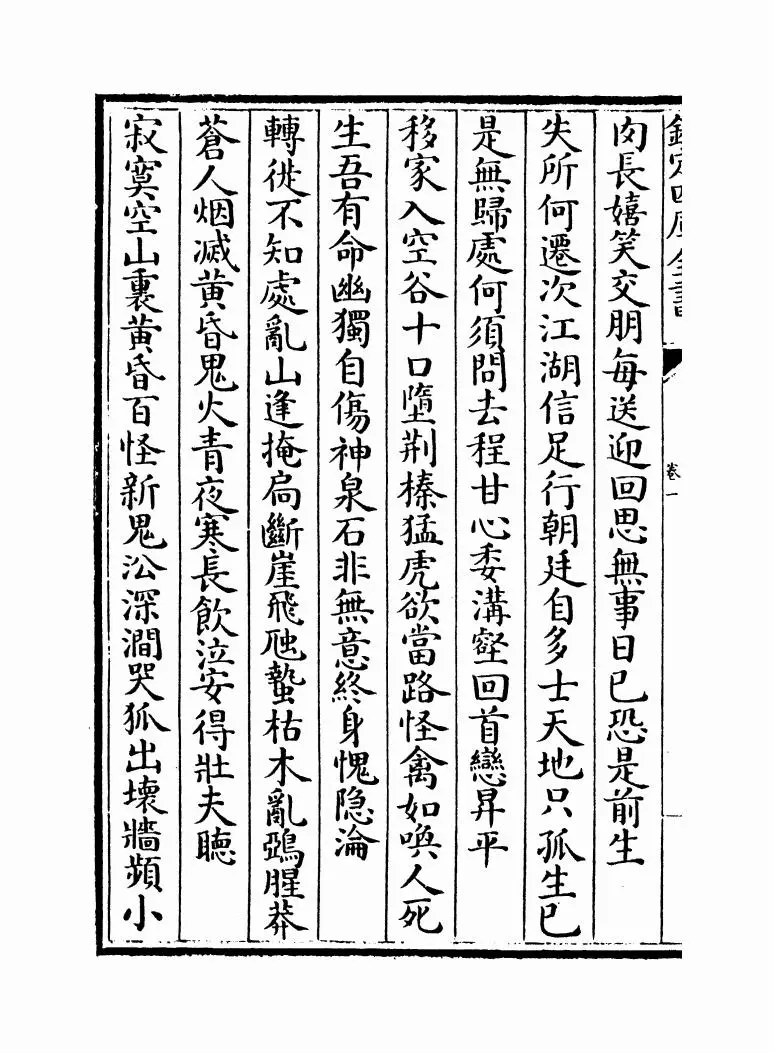 欽定四庫全書
卷一
肉長嬉笑交朋每送迎回思無事日已恐是前生
失所何遷次江湖信足行朝廷自多士天地只孤生已
是無歸處何須問去程甘心委溝壑回首戀昇平
移家入空谷十口墮荆榛猛虎欲當路怪禽如喚人死
生吾有命幽獨自傷神泉石非無意終身愧隐淪
轉徙不知處亂山逢掩扃斷崖飛虺蟄枯木亂鵶腥莽
蒼人烟滅黄昏鬼火青夜寒長飲泣安得壯夫聽
寂寞空山裏黄昏百怪新鬼㳂深澗哭狐出壞牆頻小